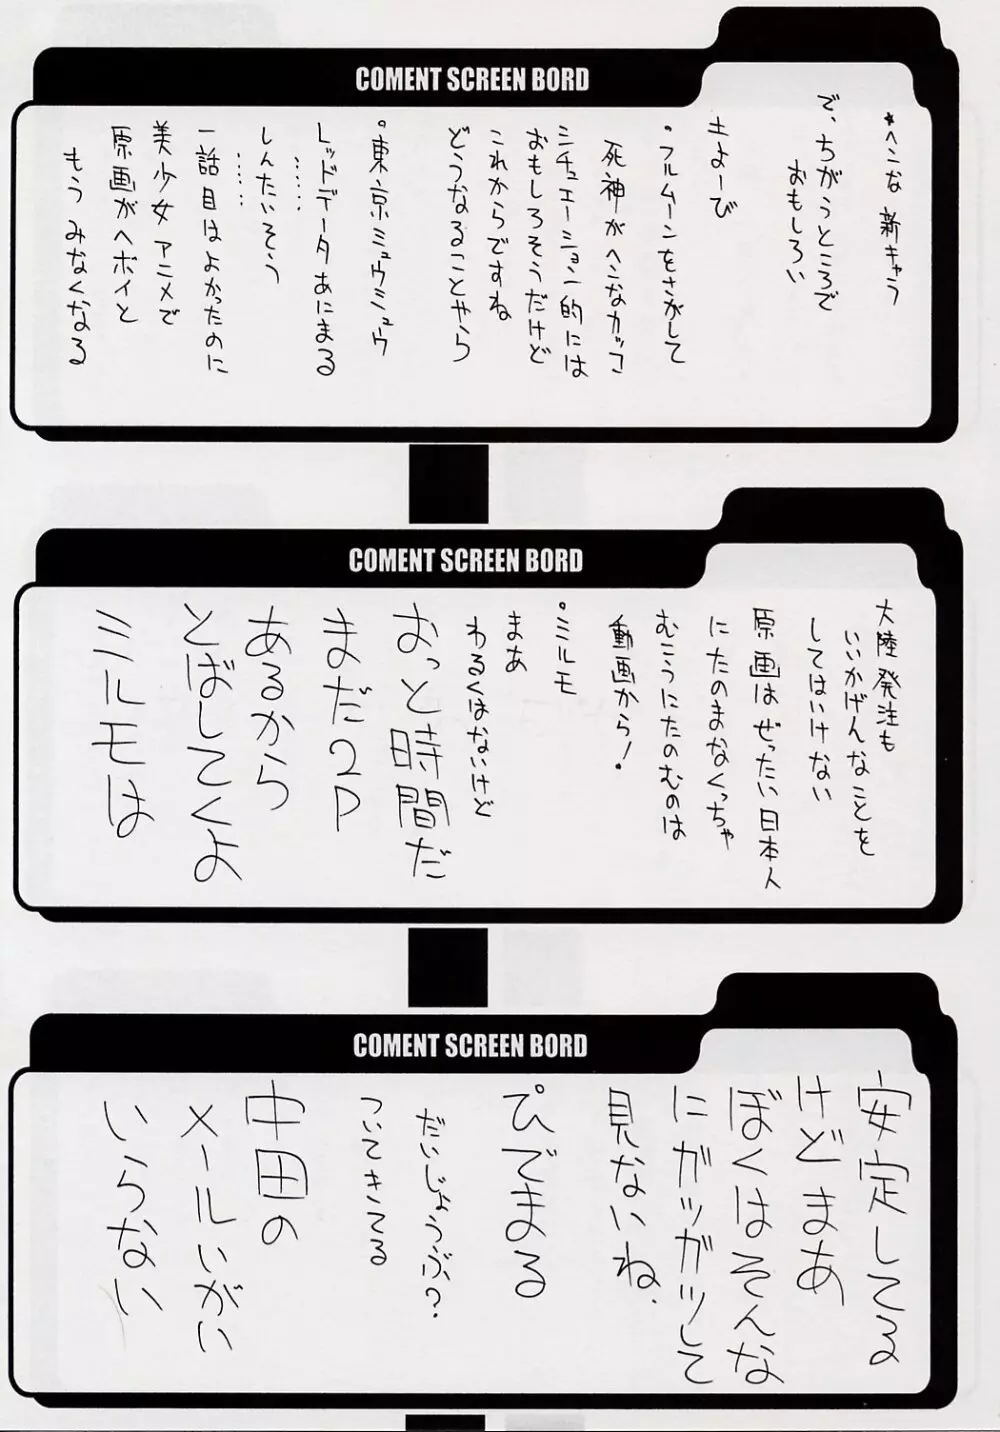 COMENT SCREEN BORD
*ヘンな 新キャラ
で、ちがうところで
おもしろい
土よーび
・フルムーンをさがして
死神がヘンなカッコ
シチュエーション的には
おもしろそうだけど
これからですね
どうなることやら
。東京ミュウミュウ
レッドデータあにまる
……
しんたいそう
……
一話目はよかったのに
美少女アニメで
原画がヘボイと
もう みなくなる
COMENT SCREEN BORD
大陸発注も
いいかげんなことを
してはいけない
原画はぜったい日本人
にたのまなくっちゃ
むこうにたのむのは
動画から!
。ミルモ
まあ
わるくはないけど
おっと時間だ
まだ2P
あるから
とばしてくよ
ミルモは
COMENT SCREEN BORD
安定してる
けど まあ
ぼくはそんな
にガッガッして
見ないね.
ぴでまる
だいじょうぶ?
ついてきてる
中田の
メールいがい
いらない